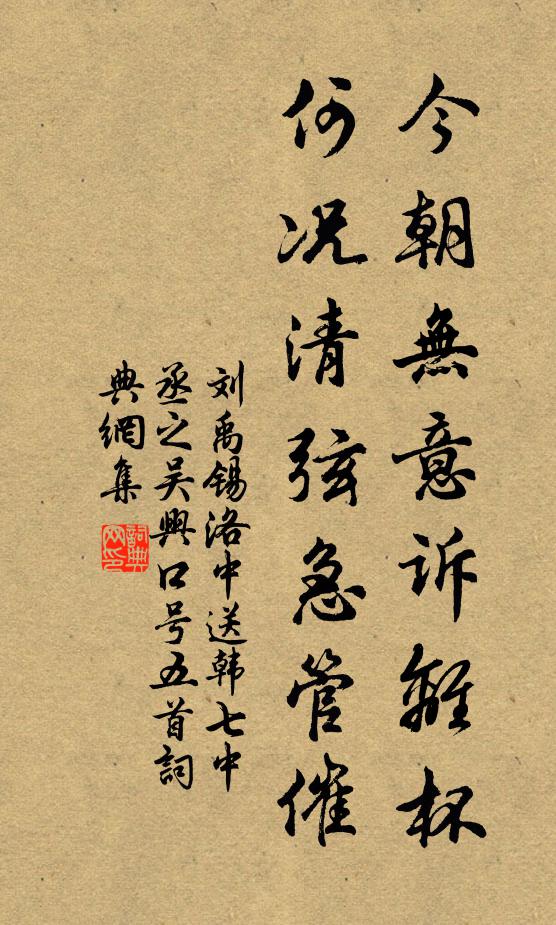 今朝無意訴離杯
何况清弦急管催
刘禹锡洛中送韩七中
丞之吴興口号五首詞
典網集
詞典网印